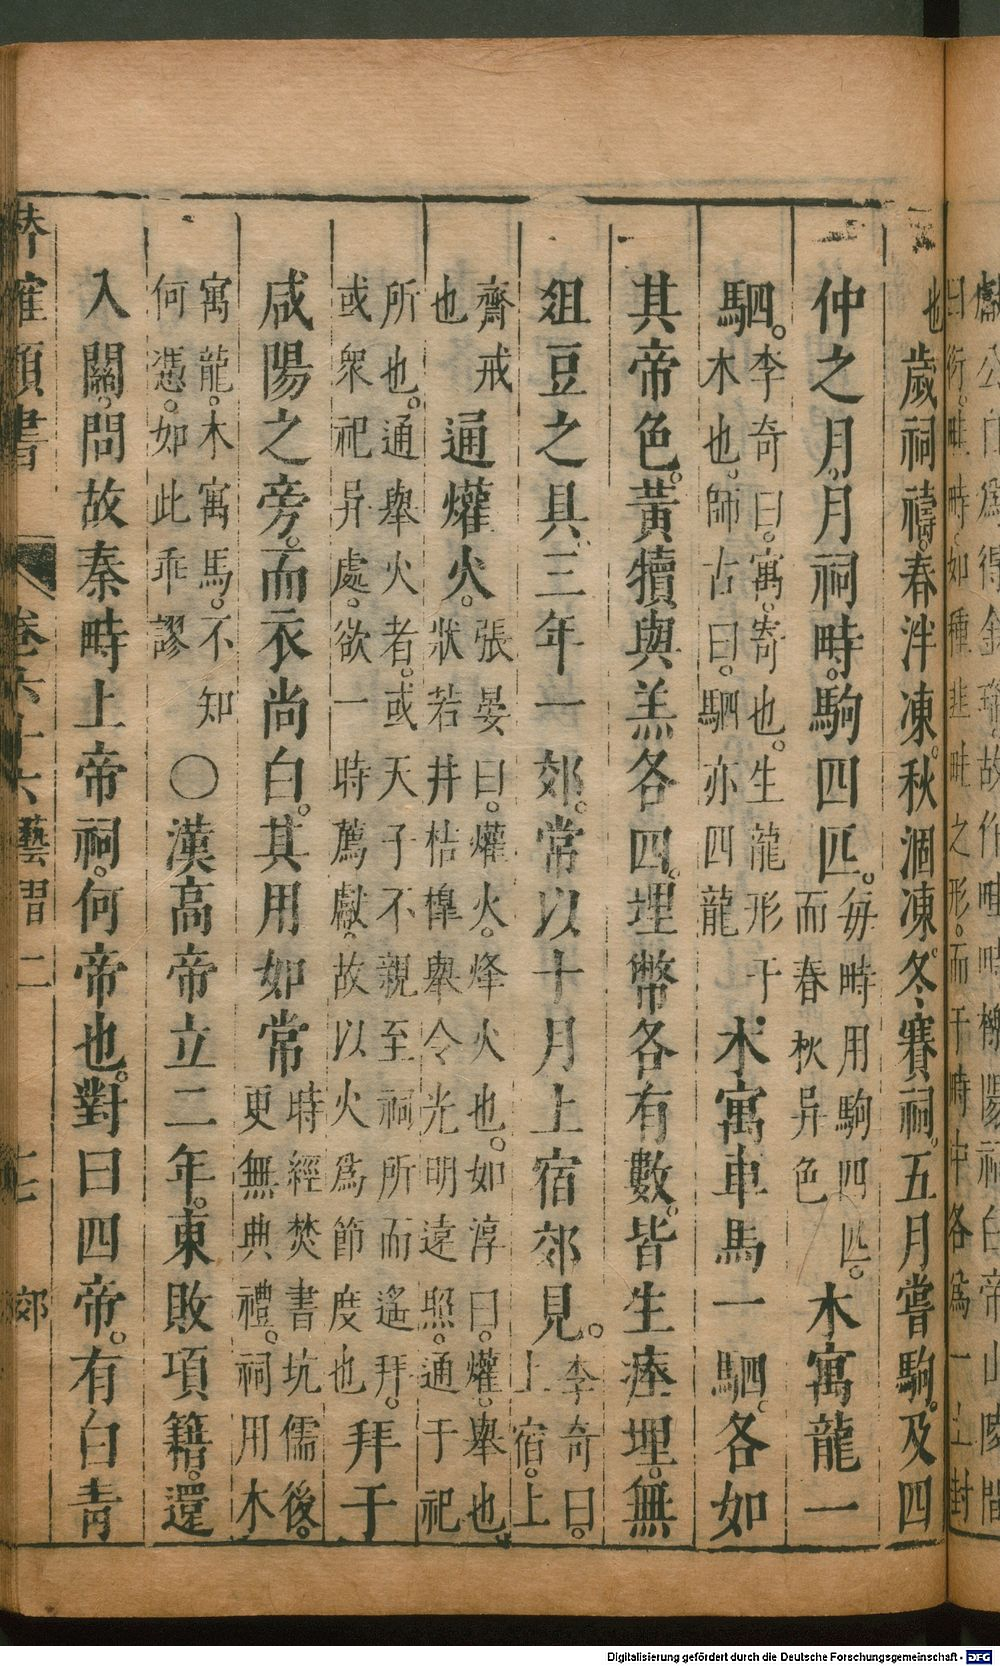 公自爲得金瑞。故作畦畤櫟陽祀白帝山陵間
曰衍。畦畤。如種韭畦之形。而于畤中各爲一土封
也歲祠禱。春泮凍。秋涸凍。冬賽祠。五月嘗駒。及四
仲之月。月祠畤。駒四匹。每畤用駒四匹。而春秋异色木寓龍一
駟。李奇曰。寓。寄也。生龍形于木也。師古曰。駟亦四龍木寓車馬一駟。各如
其帝色。黃犢與羔各四。埋幣各有數。皆生瘞埋。無
俎豆之具。三年一郊。常以十月上宿郊見。李奇曰。上宿。上
齋戒也通爟火。張晏曰。爟火。烽火也。如淳曰。爟。舉也。狀若井桔槔舉令光明遠照。通于祀
所也。通舉火者。或天子不親至祠所而遙拜。或衆祀异處。欲一時薦獻。故以火爲節度也拜于
咸陽之旁。而衣尚白。其用如常時經焚書坑儒後。更無典禮。祠用木
寓龍。木寓馬。不知何憑。如此乖謬〇漢高帝立二年。東敗項籍。還
入關。問故秦畤上帝祠。何帝也。對曰四帝。有白青
類書 卷六十六藝習二 七 郊
Digitalisierung gefördert durch die Deutsche Forschungsgemeinschaft - DFG